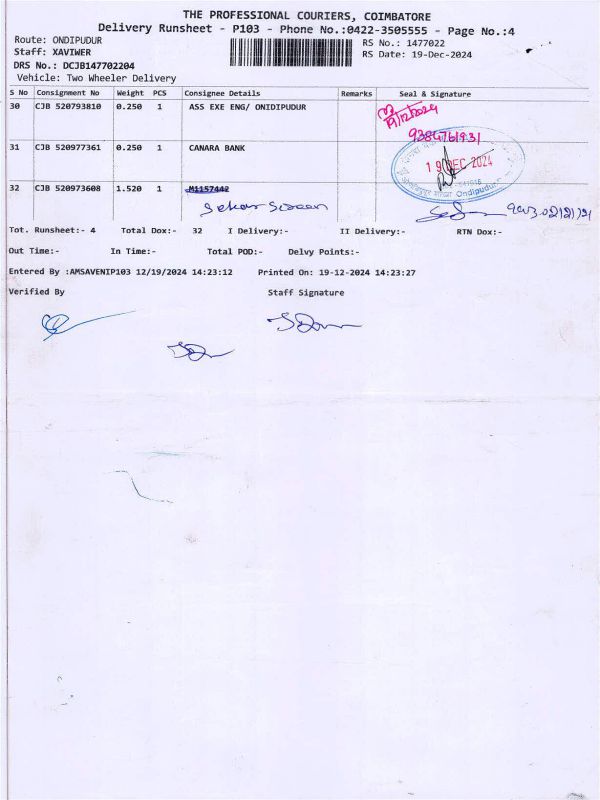 THE PROFESSIONAL COURIERS, COIMBATORE
Delivery Runsheet - P103 - Phone No.:0422-3505555 - Page No.:4
Route: ONDIPUDUR RS No.: 1477022
Staff: XAVIWER RS Date: 19-Dec-2024
DRS No.: DCJB147702204
Vehicle: Two Wheeler Delivery
S No Consignment No Weight PCS Consignee Details Remarks Seal & Signature
30 CJB 520793810 0.250 1 ASS EXE ENG/ ONIDIPUDUR
19/12/2024
9384761931
31 CJB 520977361 0.250 1 CANARA BANK
19 DEC 2024
Ondipudur
32 CJB 520973608 1.520 1 M1157442
Tot. Runsheet:- 4 Total Dox:- 32 I Delivery:- II Delivery:- RTN Dox:-
Out Time:- In Time:- Total POD:- Delvy Points:-
Entered By :AMSAVENIP103 12/19/2024 14:23:12 Printed On: 19-12-2024 14:23:27
Verified By Staff Signature